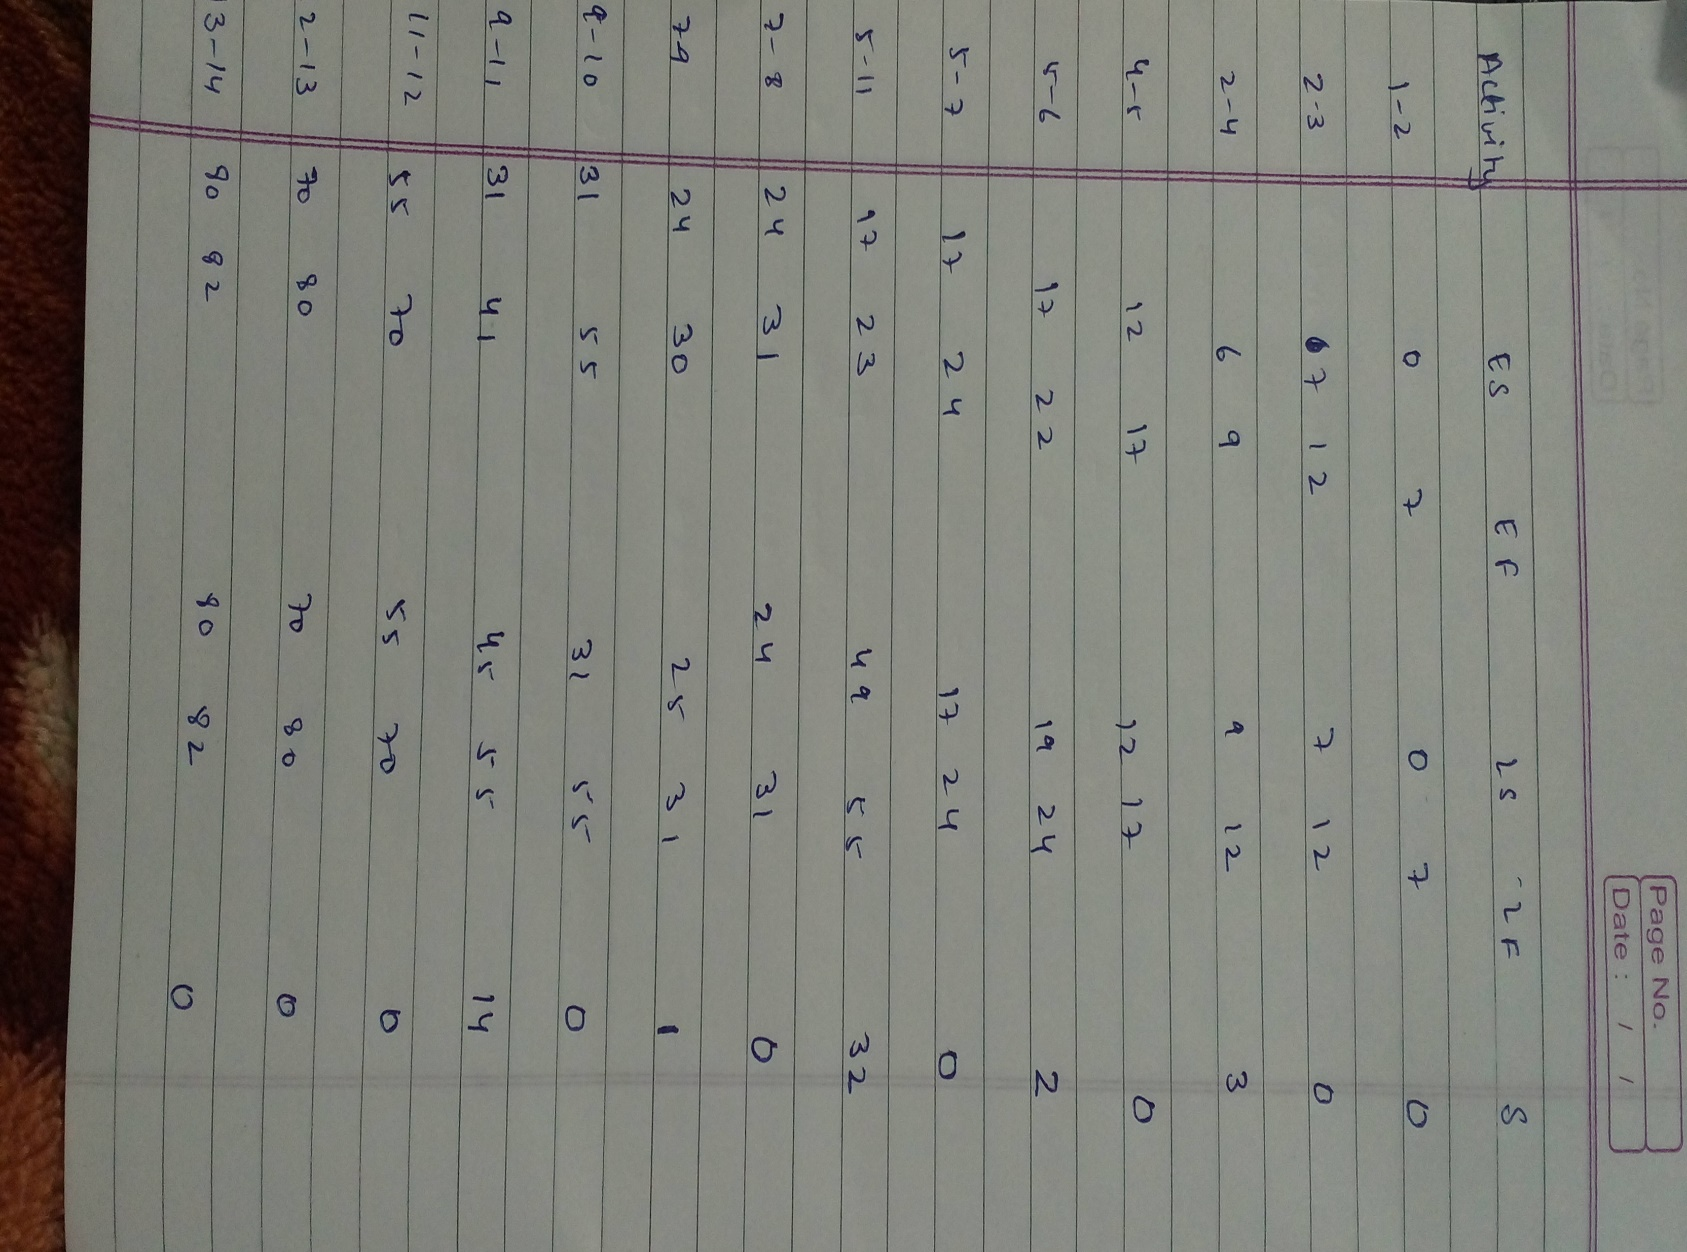 Page No.
Date: / /
Activity ES EF LS - LF S
1-2 0 7 0 7 0
2-3 7 12 7 12 0
2-4 6 9 9 12 3
4-5 12 17 12 17 0
5-6 17 22 19 24 2
5-7 17 24 17 24 0
5-11 17 23 49 55 32
7-8 24 31 24 31 0
79 24 30 25 31 1
9-10 31 55 31 55 0
9-11 31 41 45 55 14
11-12 55 70 55 70 0
2-13 70 80 70 80 0
3-14 80 82 80 82 0